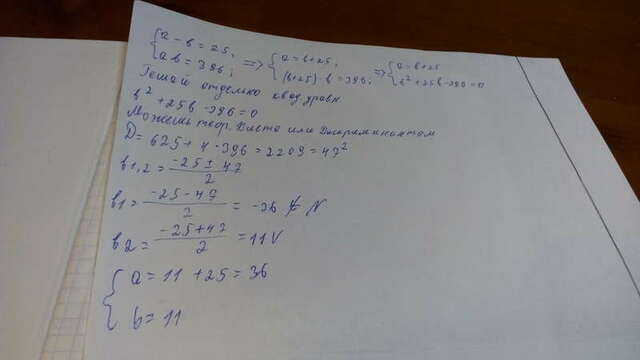 { a - b = 25; => { a = b+25; => { a = b+25
{ ab = 396; { (b+25) · b = 396; { b² + 25b - 396 = 0
Решай отдельно квад. уравн.
b² + 25b - 396 = 0
Можешь теор. Виета или Дискриминантом
D = 625 + 4 · 396 = 2209 = 47²
b1,2 = (-25 ± 47)/2
b1 = (-25 - 47)/2 = -36 ∉ N
b2 = (-25 + 47)/2 = 11 V
{ a = 11 + 25 = 36
{ b = 11